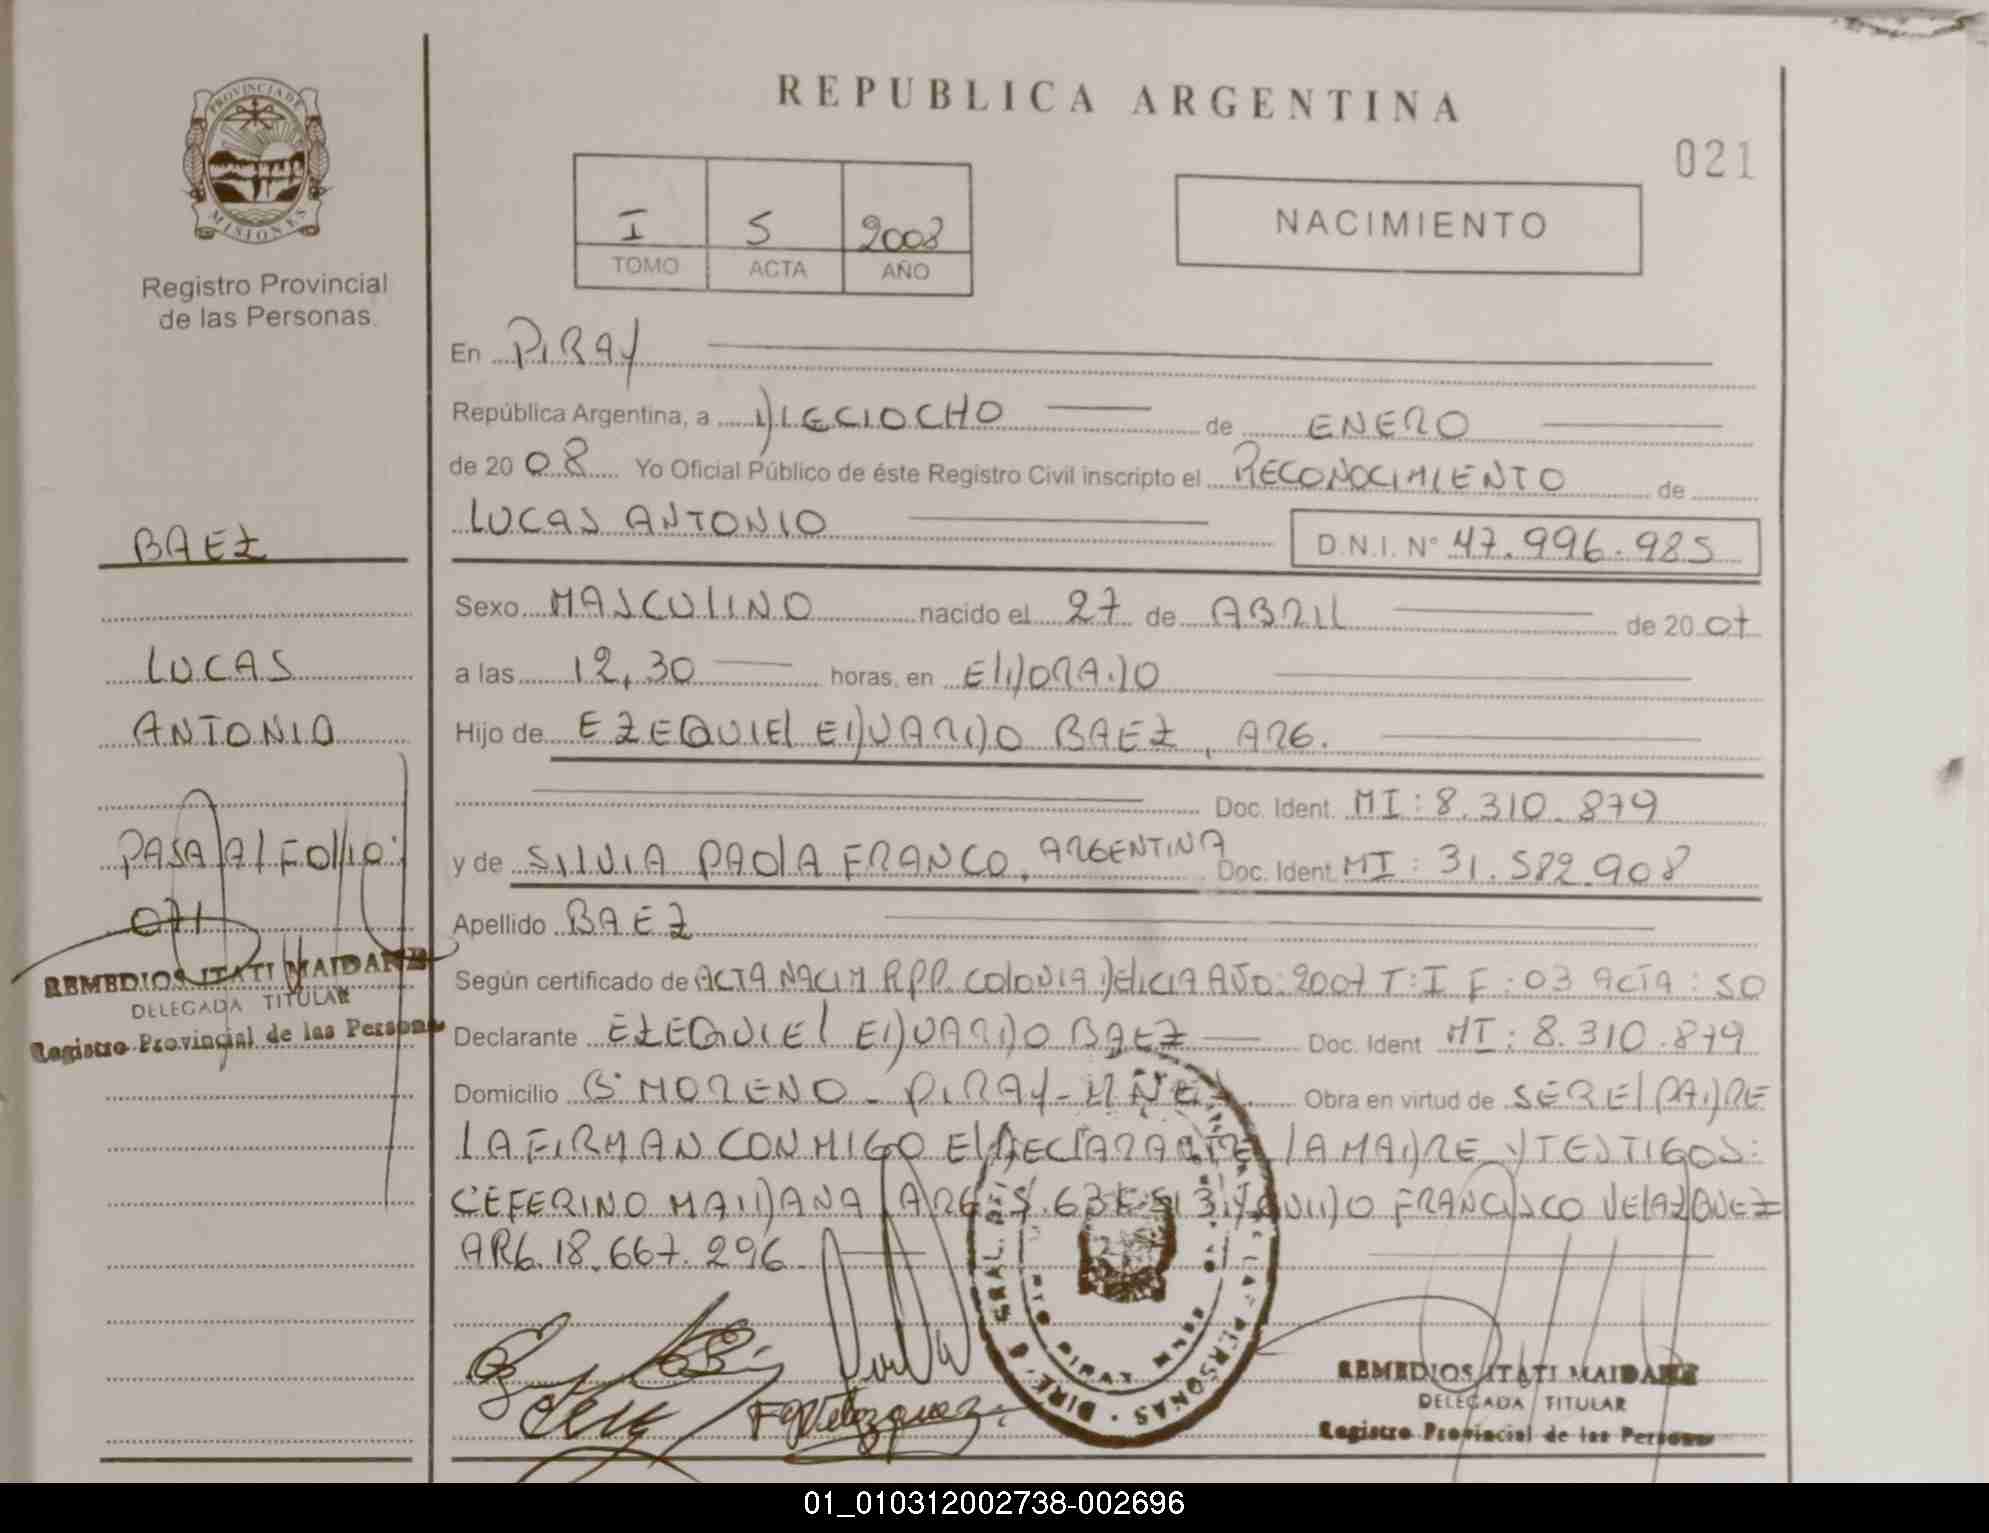 REPUBLICA ARGENTINA
021
PROVINCIA DE
MISIONES
Registro Provincial
de las Personas.
I S 2008
TOMO ACTA AÑO
NACIMIENTO
En PIRAY
República Argentina, a DIECIOCHO de ENERO
de 20 08 Yo Oficial Público de éste Registro Civil inscripto el RECONOCIMIENTO de
LUCAS ANTONIO D.N.I. Nº 47.996.985
Sexo MASCULINO nacido el 27 de ABRIL de 20 07
a las 12,30 horas, en ElDORADO
Hijo de EZEQUIEl EDUARDO BAEZ, ARG.
Doc. Ident. MI: 8.310.879
y de SILVIA PAOlA FRANCO, ARGENTINA Doc. Ident. MI: 31.582.908
Apellido BAEZ
Según certificado de ACTA NACIM RPP. COlONIA DElICIA AÑO: 2007 T: I F: 03 ACTA: 50
Declarante EZEQUIEl EDUARDO BAEZ Doc. Ident MI: 8.310.879
Domicilio Bº MORENO - PIRAY - Obra en virtud de SER El PADRE
lA FIRMAN CONMIGO El DEClARANTE lA MADRE Y TESTIGOS:
CEFERINO MAIDANA ARG FRANCISCO VElAZQUEZ
ARG. 18.667.296
BAEZ
LUCAS
ANTONIO
PASA Al FOlIO:
071
REMEDIOS ITATI MAIDANE
DELEGADA TITULAR
Registro Provincial de las Persona
F Velazquez
REMEDIOS ITATI MAIDANE
DELEGADA TITULAR
Registro Provincial de las Persona
01_010312002738-002696